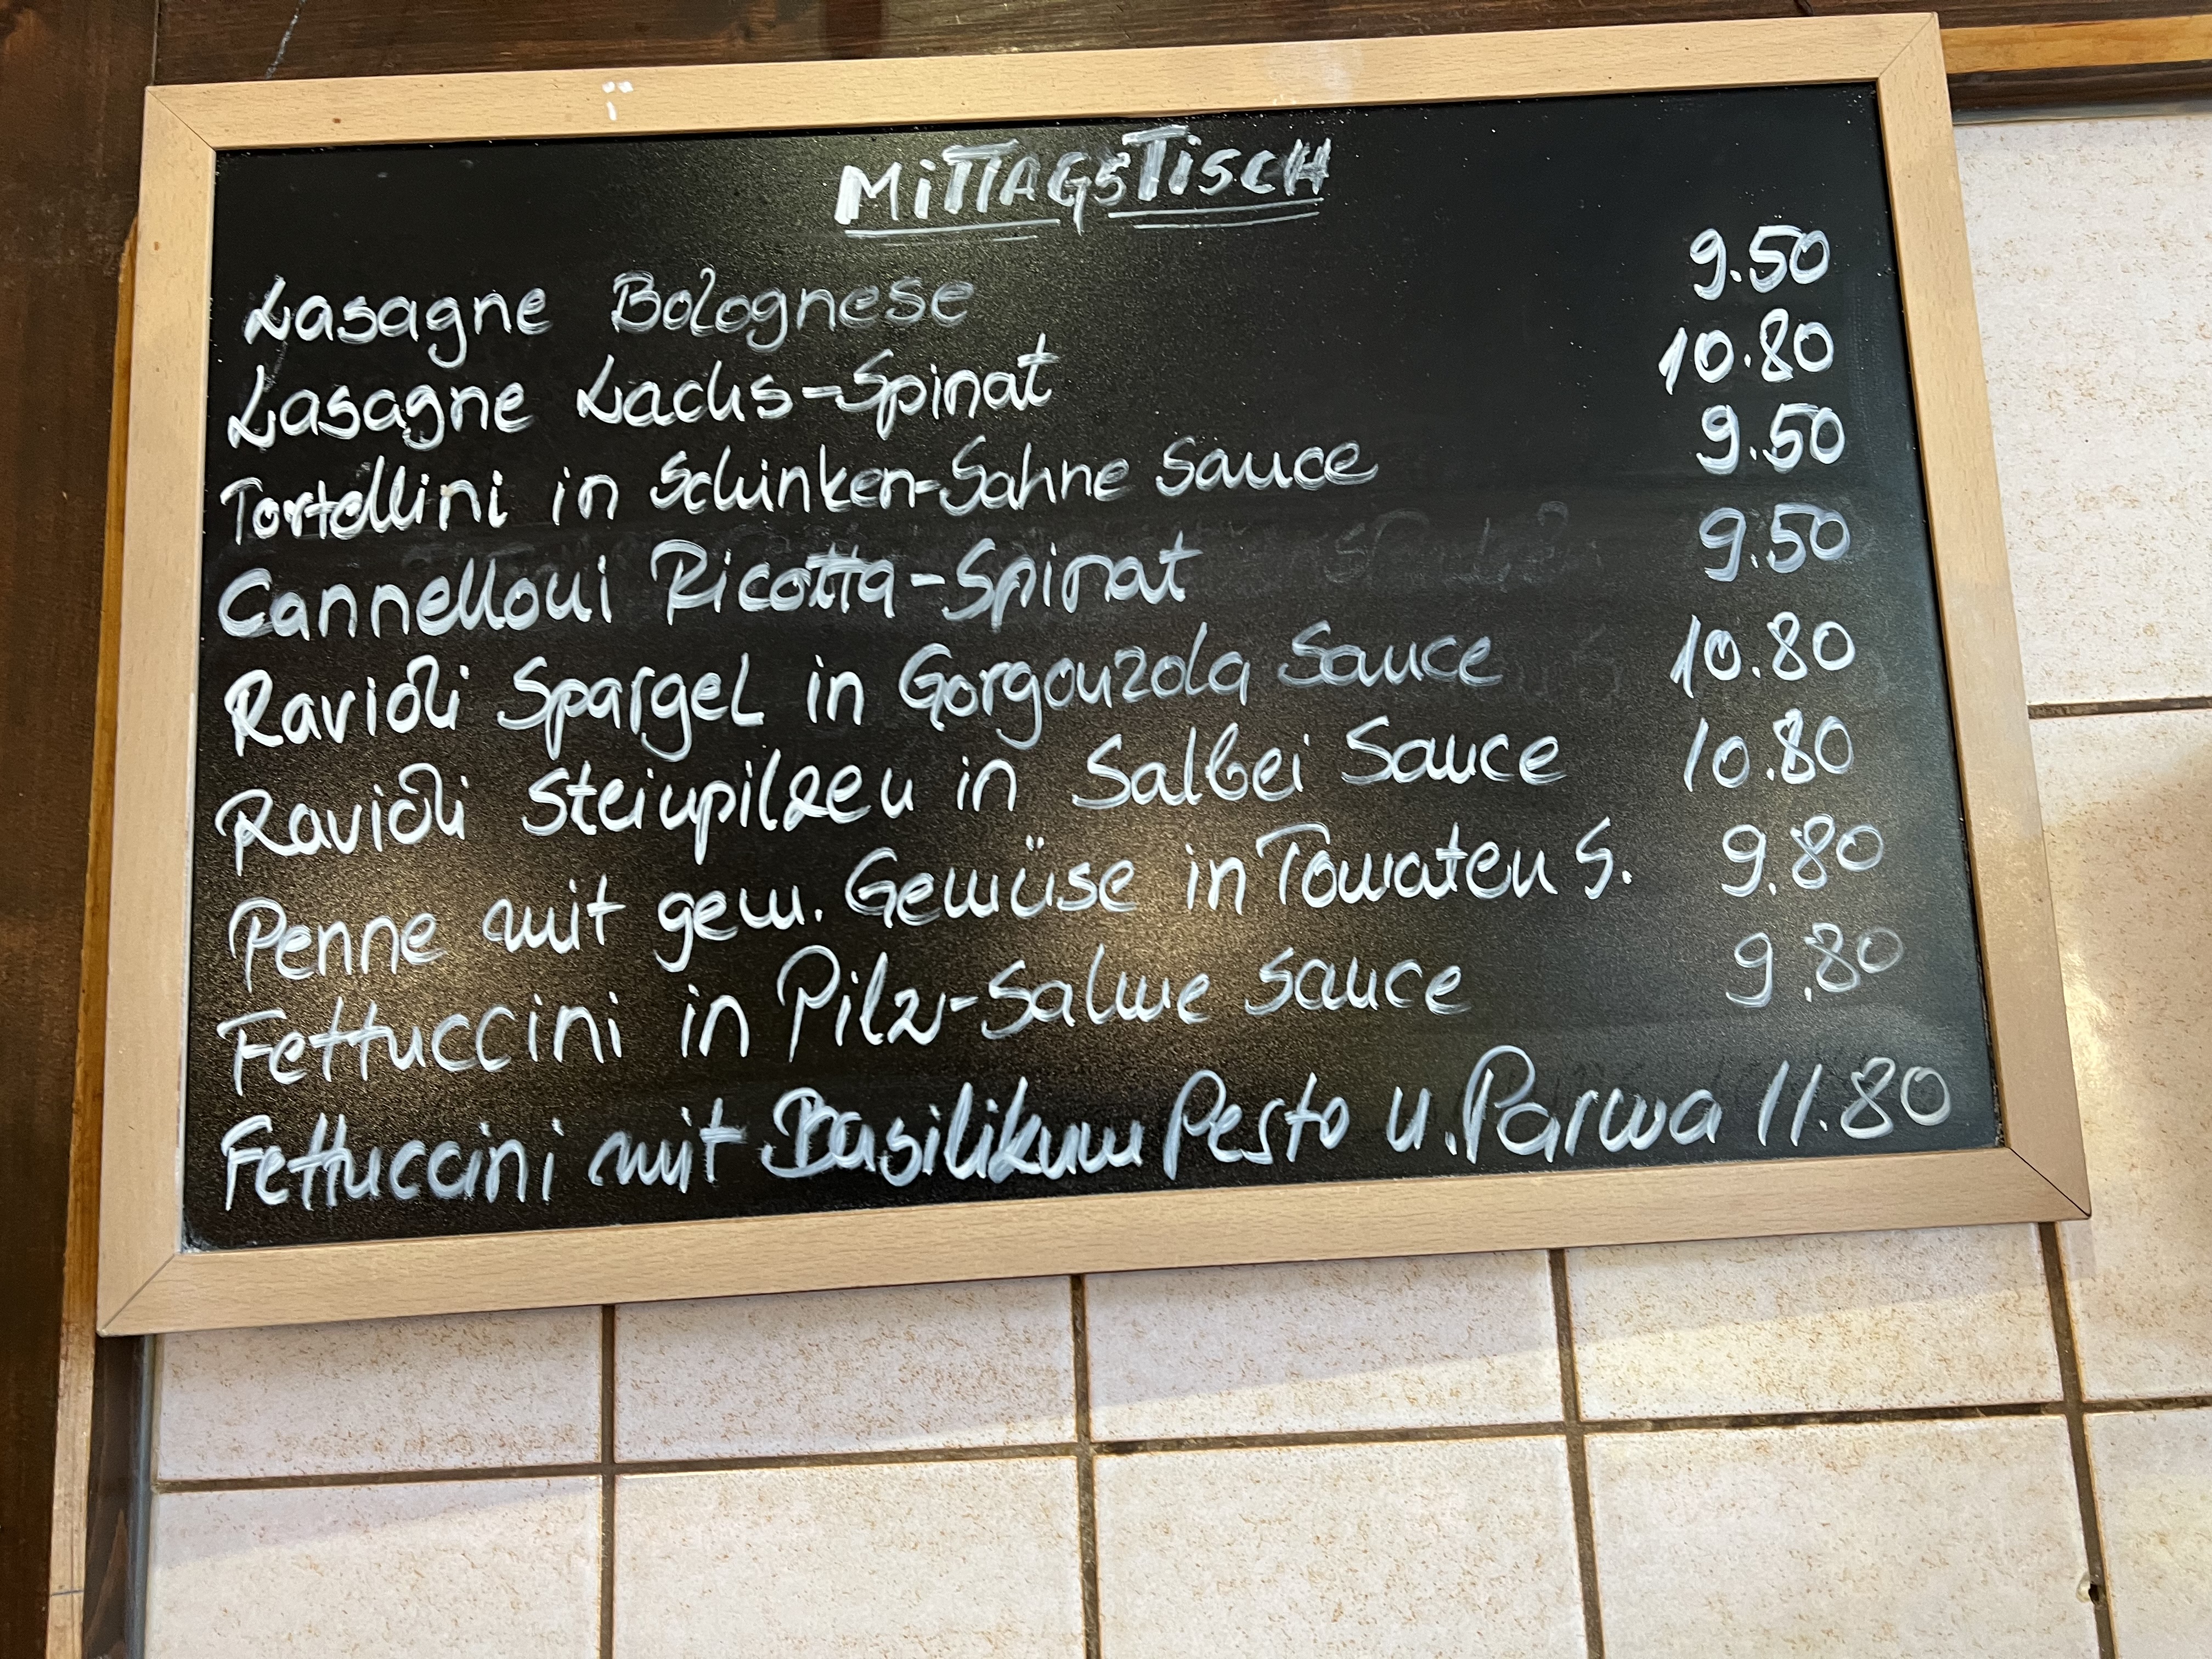 MITTAGSTISCH
Lasagne Bolognese 9.50
Lasagne Lachs-Spinat 10.80
Tortellini in Schinken-Sahne Sauce 9.50
Cannelloni Ricotta-Spinat 9.50
Ravioli Spargel in Gorgonzola Sauce 10.80
Ravioli Steinpilzen in Salbei Sauce 10.80
Penne mit gem. Gemüse in Tomaten S. 9.80
Fettuccini in Pilz-Sahne Sauce 9.80
Fettuccini mit Basilikum Pesto u. Parma 11.80